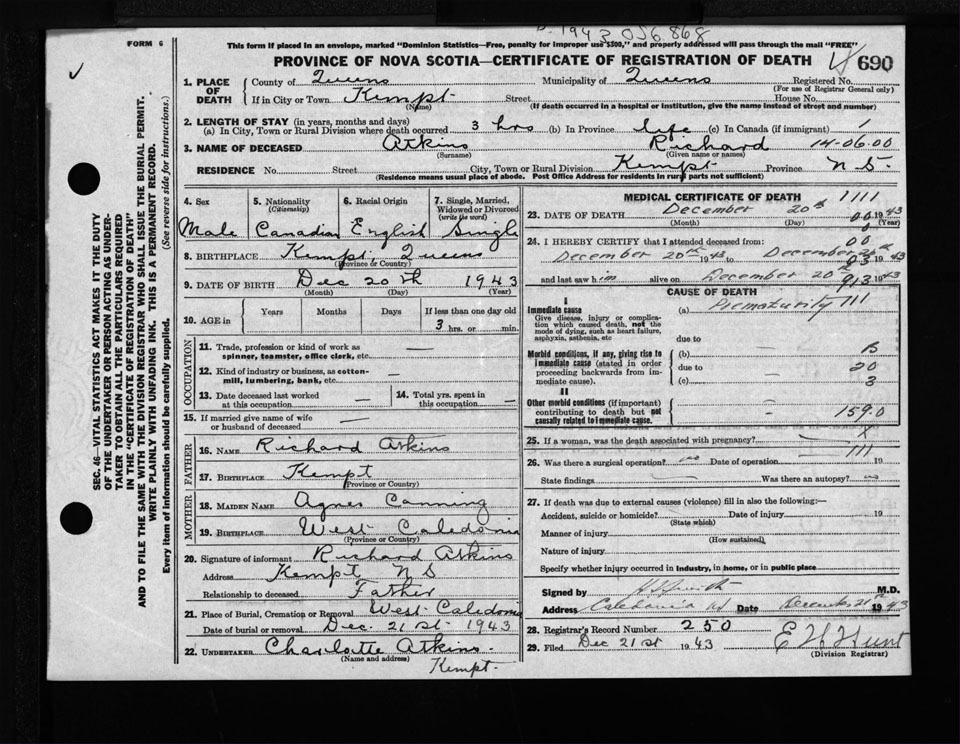 1943 056 868
FORM 6
This form if placed in an envelope, marked "Dominion Statistics—Free, penalty for improper use $300," and properly addressed will pass through the mail "FREE"
PROVINCE OF NOVA SCOTIA—CERTIFICATE OF REGISTRATION OF DEATH
690
1. PLACE OF DEATH
County of Queens Municipality of Queens Registered No.
(For use of Registrar General only)
If in City or Town Kempt Street House No.
(Name) (If death occurred in a hospital or institution, give the name instead of street and number)
2. LENGTH OF STAY (in years, months and days)
(a) In City, Town or Rural Division where death occurred 3 hrs (b) In Province life (c) In Canada (if immigrant) /
3. NAME OF DECEASED Atkins Richard 14-06.00
(Surname) (Given name or names)
RESIDENCE No. Street City, Town or Rural Division Kempt Province N.S.
(Residence means usual place of abode. Post Office Address for residents in rural parts not sufficient)
4. Sex
Male
5. Nationality
(Citizenship)
Canadian
6. Racial Origin
English
7. Single, Married, Widowed or Divorced
(write the word)
Single
8. BIRTHPLACE Kempt, Queens
(Province or Country)
9. DATE OF BIRTH Dec 20th 1943
(Month) (Day) (Year)
10. AGE in Years Months Days If less than one day old
3 hrs. or min.
OCCUPATION
11. Trade, profession or kind of work as spinner, teamster, office clerk, etc. —
12. Kind of industry or business, as cotton-mill, lumbering, bank, etc. —
13. Date deceased last worked at this occupation —
14. Total yrs. spent in this occupation —
15. If married give name of wife or husband of deceased —
FATHER
16. NAME Richard Atkins
17. BIRTHPLACE Kempt
(Province or Country)
MOTHER
18. MAIDEN NAME Agnes Canning
19. BIRTHPLACE West Caledonia
(Province or Country)
20. Signature of informant Richard Atkins
Address Kempt N S
Relationship to deceased Father
21. Place of Burial, Cremation or Removal West Caledonia
Date of burial or removal Dec. 21st 1943
22. UNDERTAKER Charlotte Atkins.
(Name and address)
Kempt.
MEDICAL CERTIFICATE OF DEATH 1111
23. DATE OF DEATH December 20th 1943
(Month) (Day)
24. I HEREBY CERTIFY that I attended deceased from:
December 20th 1943 to December 20th 1943
and last saw him alive on December 20th 1943
913
CAUSE OF DEATH
I
Immediate cause
Give disease, injury or complication which caused death, not the mode of dying, such as heart failure, asphyxia, asthenia, etc.
(a) Prematurity 111
due to
Morbid conditions, if any, giving rise to immediate cause (stated in order proceeding backwards from immediate cause).
(b) B
due to 20
(c) 3
II
Other morbid conditions (if important) contributing to death but not causally related to immediate cause.
159.0
25. If a woman, was the death associated with pregnancy? — X
26. Was there a surgical operation? no Date of operation 111 19
State findings — Was there an autopsy? no
27. If death was due to external causes (violence) fill in also the following:—
Accident, suicide or homicide? Date of injury 19
(State which)
Manner of injury
(How sustained)
Nature of injury
Specify whether injury occurred in industry, in home, or in public place
Signed by M.D.
Address Caledonia Date December 21st 1943
28. Registrar's Record Number 250
29. Filed Dec 21st 1943 E H Hunt
(Division Registrar)
SEC. 46—VITAL STATISTICS ACT MAKES IT THE DUTY
OF THE UNDERTAKER OR PERSON ACTING AS UNDERTAKER TO OBTAIN ALL THE PARTICULARS REQUIRED
IN THE "CERTIFICATE OF REGISTRATION OF DEATH"
AND TO FILE THE SAME WITH THE DIVISION REGISTRAR WHO SHALL ISSUE THE BURIAL PERMIT.
WRITE PLAINLY WITH UNFADING INK. THIS IS A PERMANENT RECORD.
Every item of information should be carefully supplied. (See reverse side for instructions.)